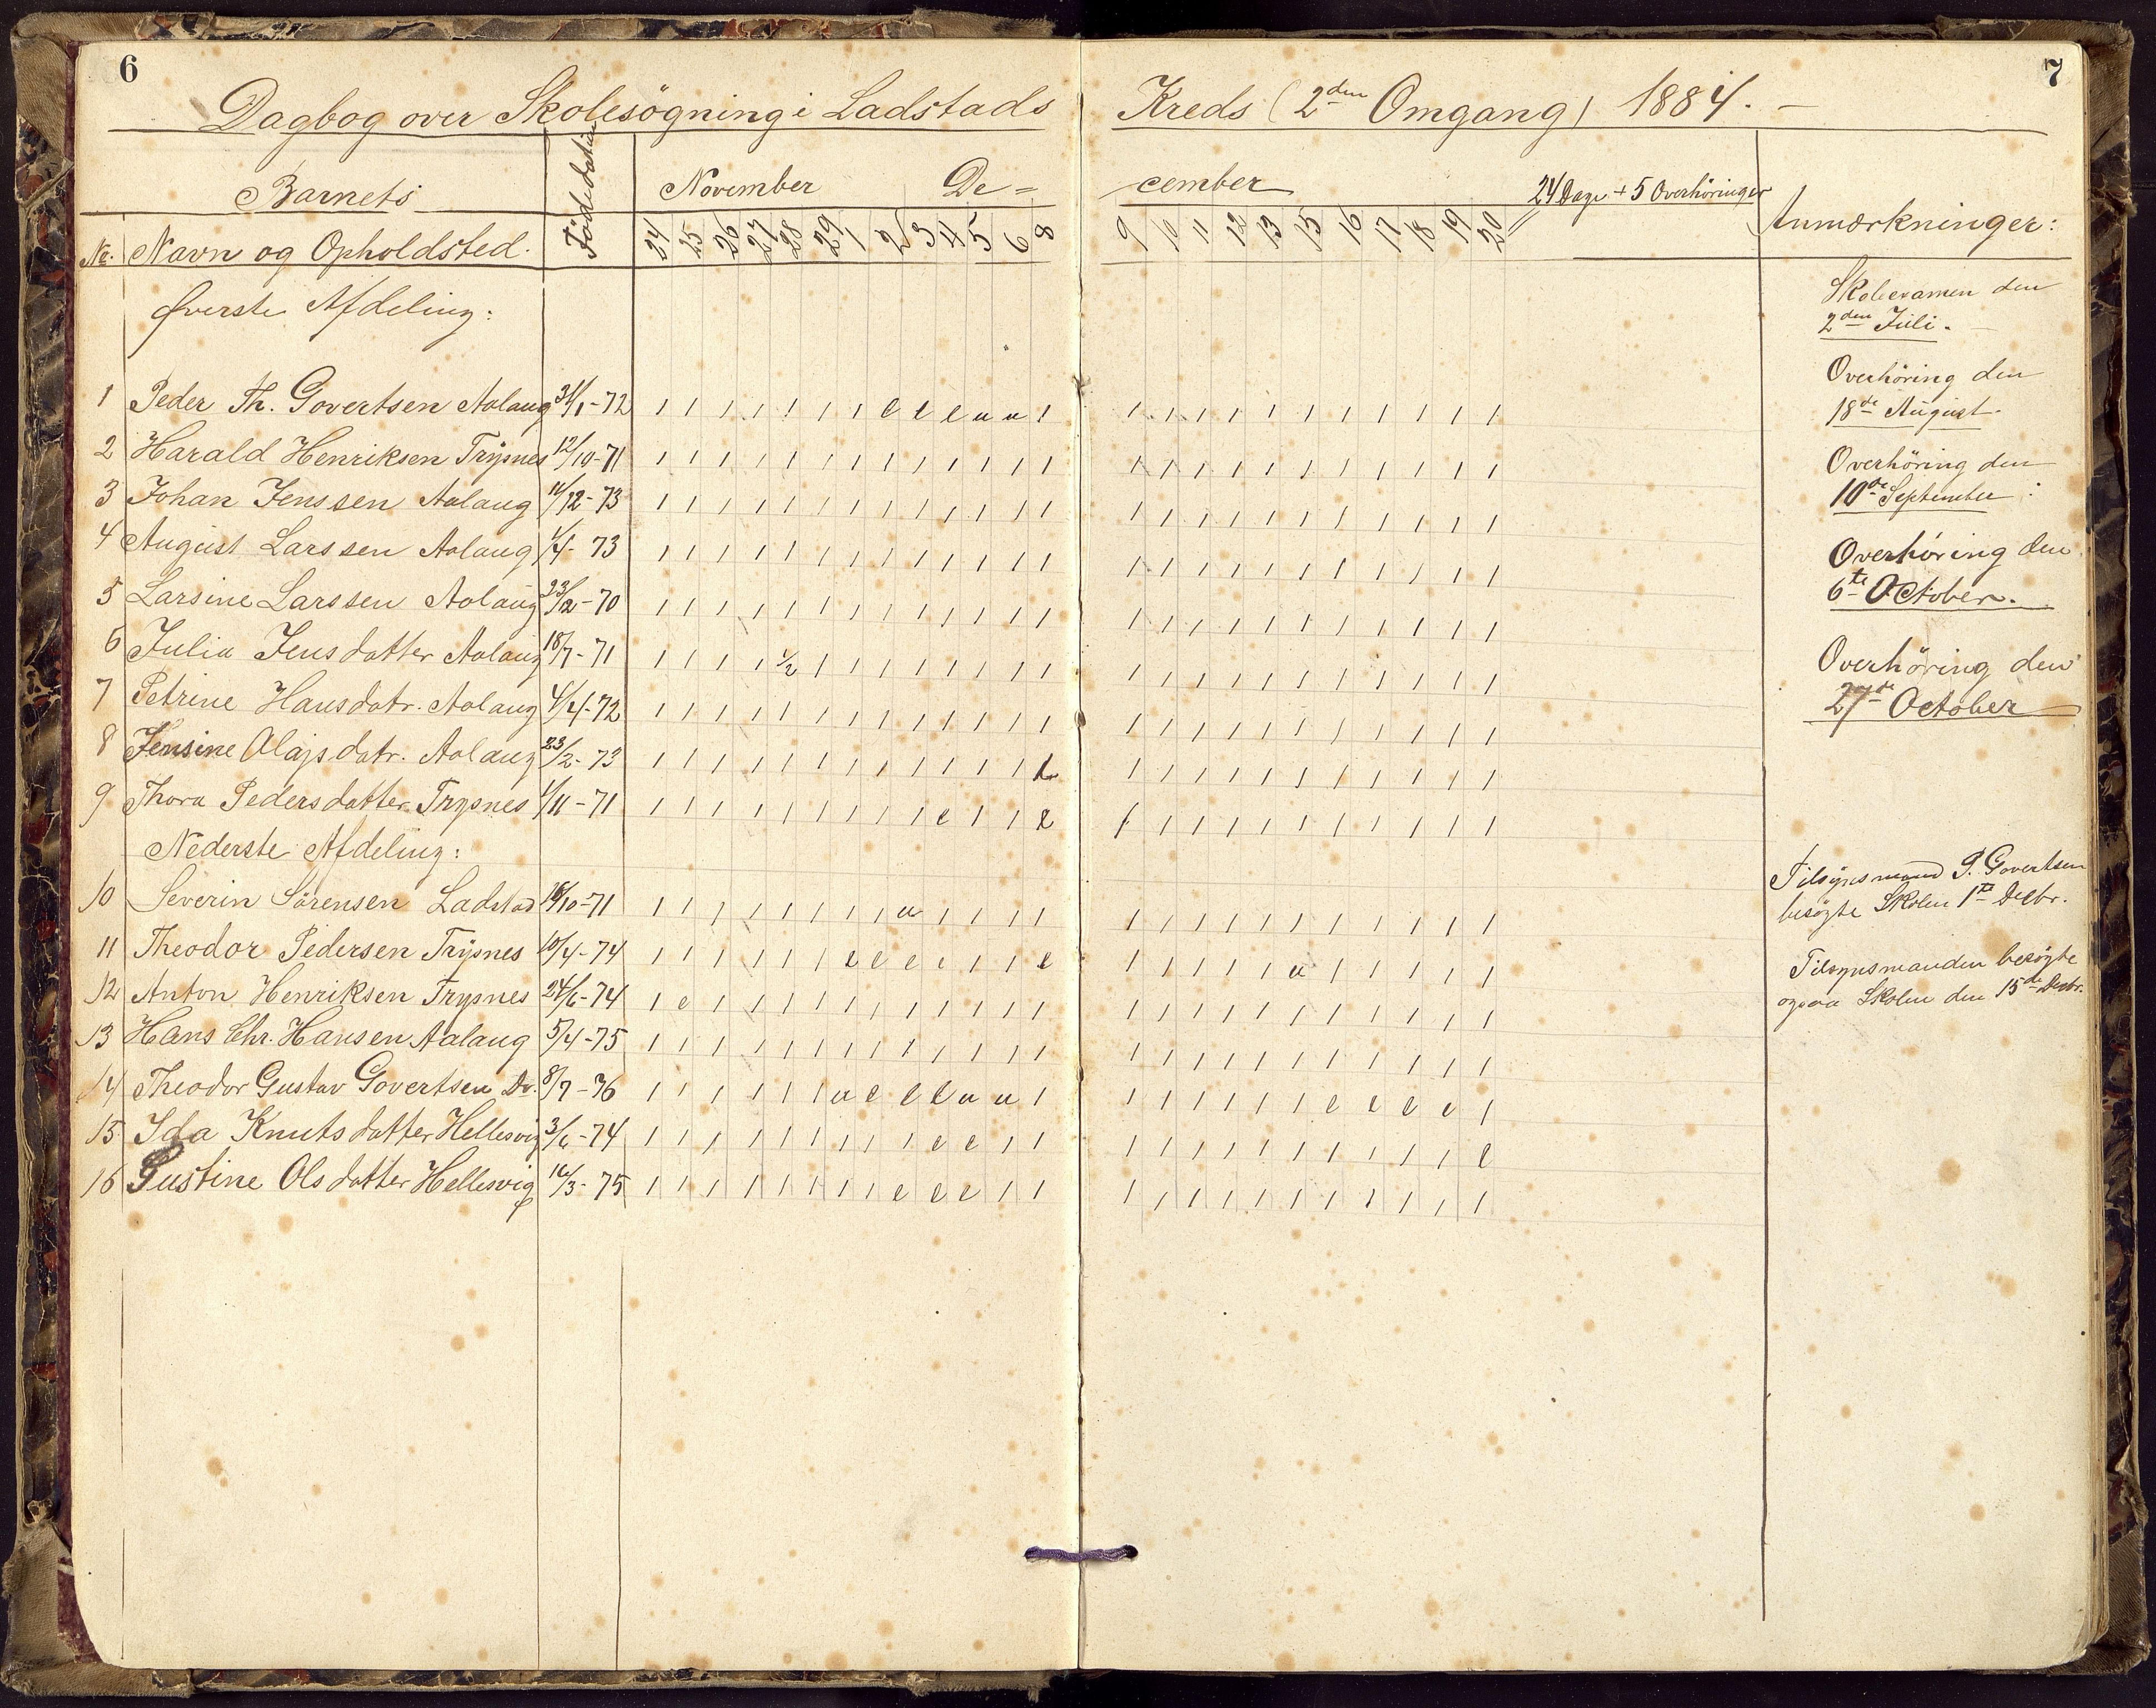 6
7
Dagbog over Skolesøgning i Ladstads Kreds (2den Omgang) 1884. –
Barnets
Födedatum
November De=cember
24 Dage + 5 Overhöringer
Anmærkninger:
No. Navn og Opholdsted.
24 25 26 27 28 29 1 2 3 4 5 6 8 9 10 11 12 13 15 16 17 18 19 20
Øverste Afdeling:
1 Peder Th. Govertsen Aalaug 31/1-72 1 1 1 1 1 1 1 e e e u u 1 1 1 1 1 1 1 1 1 1 1 1
2 Harald Henriksen Trysnes 12/10-71 1 1 1 1 1 1 1 1 1 1 1 1 1 1 1 1 1 1 1 1 1 1 1 1
3 Johan Jenssen Aalaug 11/12-73 1 1 1 1 1 1 1 1 1 1 1 1 1 1 1 1 1 1 1 1 1 1 1 1
4 August Larssen Aalaug 1/4-73 1 1 1 1 1 1 1 1 1 1 1 1 1 1 1 1 1 1 1 1 1 1 1 1
5 Larsine Larssen Aalaug 23/12-70 1 1 1 1 1 1 1 1 1 1 1 1 1 1 1 1 1 1 1 1 1 1 1 1
6 Julia Jensdatter Aalaug 18/7-71 1 1 1 1 1/2 1 1 1 1 1 1 1 1 1 1 1 1 1 1 1 1 1 1 1
7 Petrine Hansdatr. Aalaug 4/4-72 1 1 1 1 1 1 1 1 1 1 1 1 1 1 1 1 1 1 1 1 1 1 1 1
8 Jensine Olajsdatr. Aalaug 23/2-73 1 1 1 1 1 1 1 1 1 1 1 1 1 1 1 1 1 1 1 1 1 1 1
9 Thora Pedersdatter Trysnes 1/11-71 1 1 1 1 1 1 1 1 1 e 1 1 e 1 1 1 1 1 1 1 1 1 1 1
Nederste Afdeling:
10 Severin Sörensen Ladstad /10-71 1 1 1 1 1 1 1 1 u 1 1 1 1 1 1 1 1 1 1 1 1 1 1 1
11 Theodor Pedersen Trysnes 10/4-74 1 1 1 1 1 1 e e e e 1 1 e 1 1 1 1 u 1 1 1 1 1 1
12 Anton Henriksen Trysnes 24/6-74 1 e 1 1 1 1 1 1 1 1 1 1 1 1 1 1 1 1 1 1 1 1 1 1
13 Hans Chr. Hansen Aalaug 5/4-75 1 1 1 1 1 1 1 1 1 1 1 1 1 1 1 1 1 1 1 1 1 1 1 1
14 Theodor Gustav Govertsen Do. 8/7-76 1 1 1 1 1 1 u e e e u u 1 1 1 1 1 1 1 e e e e 1
15 Ida Knutsdatter Hellesvig 3/6-74 1 1 1 1 1 1 1 1 1 e e 1 1 1 1 1 1 1 1 1 1 1 1 e
16 Gustine Olsdatter Hellesvig 16/3-75 1 1 1 1 1 1 1 1 e e e 1 1 1 1 1 1 1 1 1 1 1 1 1
Skoleexamen den
2den Juli. –
Overhöring den
18de August.
Overhöring den
10de September.
Overhöring den
6te October.
Overhöring den
27de October
Tilsynsmand P. Govertsen
besögte Skolen 1te Decbr.
Tilsynsmanden besögte
ogsaa Skolen den 15de Decbr.